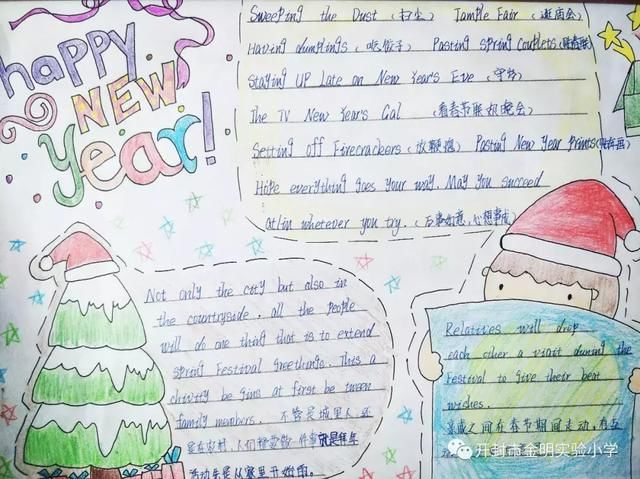 HAPPY
NEW
Year!
Sweeping the Dust (扫尘) Tample Fair (逛庙会)
Having dumplings (吃饺子) Pasting Spring Couplets (贴春联)
Staying UP Late on New Year's Eve (守岁)
The TV New Year's Gal (看春节联欢晚会)
Setting off Firecrackers (放鞭炮) Pasting New Year Prints (贴年画)
Hope everything goes your way. May you succeed
at/in whetever you try. (万事如意,心想事成)
Not only the city but also in
the countryside, all the people
will do one thing that is to extend
Spring Festival Greetings. This a
chivity be gins at first be tween
family members. 不管是城里人,还
是在农村,人们都要做一件事就是拜年
活动先是从家里开始而。
Relatives will drop
each other a visit during the
Festival to give their best
wishes.
亲戚之间在春节期间走动,
开封市金明实验小学